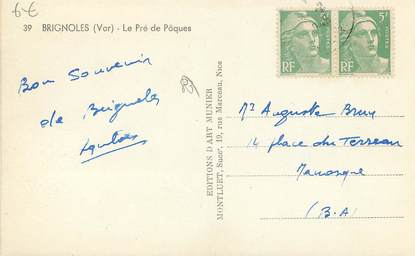 6€
39 BRIGNOLES (Var) - Le Pré de Pâques
Bon Souvenir
de Brignoles
EDITIONS D'ART MUNIER
MONTLUET, Succr, 19, rue Marceau, Nice
5F
POSTES
RF
RF
Mr Auguste Brun
14 place du Terreau
Manosque
(B.A)